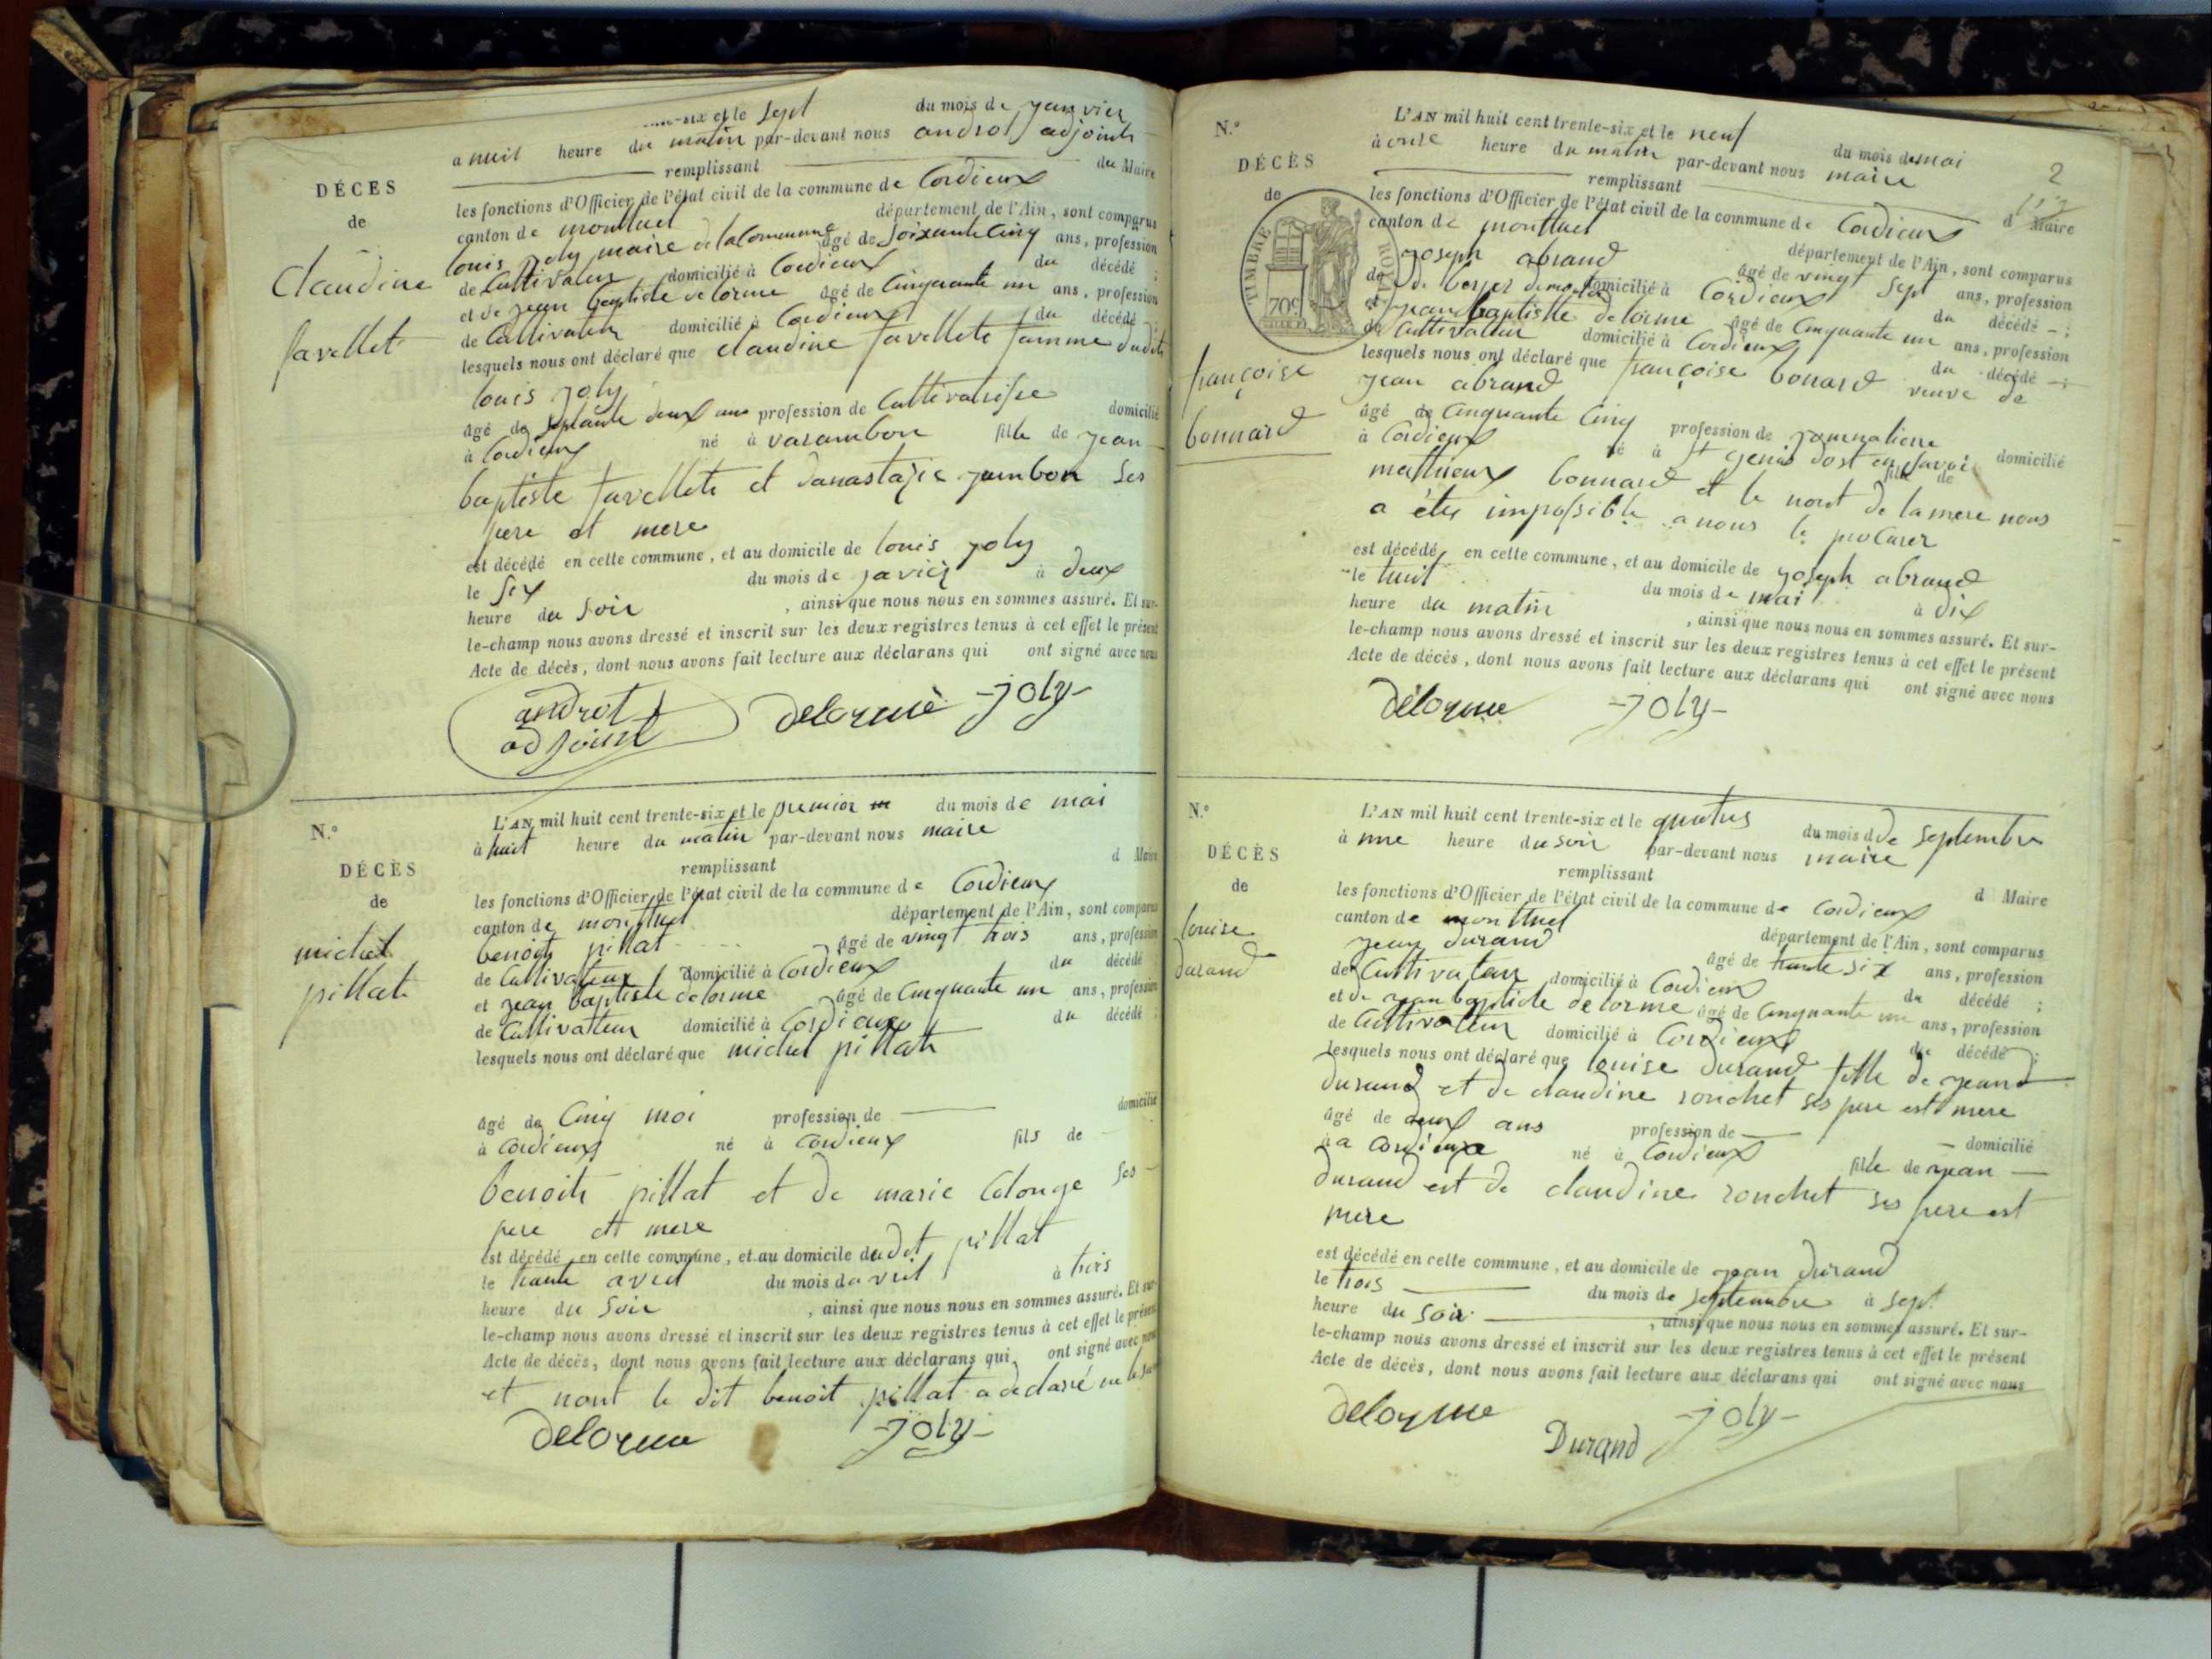 -six et le sept du mois de janvier
a huit heure du matin par-devant nous androt adjoint
remplissant du Maire
DÉCES
de
claudine
favellet
les fonctions d'Officier de l'état civil de la commune de Cordieux
canton de montluel département de l'Ain, sont comparus
louis joly maire de la Commune âgé de soixante Cinq ans, profession
de Cultivateur domicilié à Cordieux du décédé ;
et de jean baptiste delorme âgé de Cinquante un ans, profession
de Cultivateur domicilié à Cordieux du décédé ;
lesquels nous ont déclaré que claudine favellete famme dudit
louis joly
âgé de septante deux ans profession de Cultivatrisse domicilié
à Cordieux né à varambon fille de jean
baptiste favellete et danastazie jambon ses
pere et mere
est décédé en cette commune, et au domicile de louis joly
le six du mois de javier à deux
heure du soir , ainsi que nous nous en sommes assuré. Et sur-
le-champ nous avons dressé et inscrit sur les deux registres tenus à cet effet le présent
Acte de décès, dont nous avons fait lecture aux déclarans qui ont signé avec nous
androt adjoint delorme -joly-
N.°
DÉCÈS
de
michel
pillat
L'AN mil huit cent trente-six et le premier du mois de mai
à huit heure du matin par-devant nous maire
remplissant d Maire
les fonctions d'Officier de l'état civil de la commune de Cordieux
canton de montluel département de l'Ain, sont comparus
benoit pillat âgé de vingt trois ans, profession
de Cultivateur domicilié à Cordieux du décédé
et jean baptiste delorme âgé de Cinquante un ans, profession
de Cultivateur domicilié à Cordieux du décédé ;
lesquels nous ont déclaré que michel pillat
âgé de Cinq moi profession de domicilié
à Cordieux né à Cordieux fils de
benoit pillat et de marie Colonge ses
pere et mere
est décédé en cette commune, et au domicile dudit pillat
le trante avril du mois davril à trois
heure du soir , ainsi que nous nous en sommes assuré. Et sur-
le-champ nous avons dressé et inscrit sur les deux registres tenus à cet effet le présent
Acte de décès, dont nous avons fait lecture aux déclarans qui ont signé avec nous
et nont le dit benoit pillat a declaré ne le
delorme -joly-
2
N.°
DÉCÈS
de
TIMBRE ROYAL
70c
françoise
bonnard
L'AN mil huit cent trente-six et le neuf du mois de mai
à onse heure du matin par-devant nous maire
remplissant d Maire
les fonctions d'Officier de l'état civil de la commune de Cordieux
canton de montluel département de l'Ain, sont comparus
joseph abrand âgé de vingt sept ans, profession
de domicilié à Cordieux du décédé ;
et jean baptiste delorme âgé de Cinquante un ans, profession
de Cultivateur domicilié à Cordieux du décédé ;
lesquels nous ont déclaré que françoise bonard veuve de
jean abrand
âgé de Cinquante Cinq profession de journaliere domicilié
à Cordieux né à st genis dost en savoi fille de
mathieux bonnard et le nont de la mere nous
a étés impossible a nous le procurer
est décédé en cette commune, et au domicile de joseph abrand
le huit du mois de mai à dix
heure du matin , ainsi que nous nous en sommes assuré. Et sur-
le-champ nous avons dressé et inscrit sur les deux registres tenus à cet effet le présent
Acte de décès, dont nous avons fait lecture aux déclarans qui ont signé avec nous
delorme -joly-
N.°
DÉCÈS
de
louise
durand
L'AN mil huit cent trente-six et le quatres du mois de septembre
à une heure du soir par-devant nous maire
remplissant d Maire
les fonctions d'Officier de l'état civil de la commune de Cordieux
canton de montluel département de l'Ain, sont comparus
jean durand âgé de trante six ans, profession
de Cultivateur domicilié à Cordieux du décédé ;
et de jean baptiste delorme âgé de Cinquante un ans, profession
de Cultivateur domicilié à Cordieux du décédé ;
lesquels nous ont déclaré que louise durand fille de jean
durand et de claudine ronchet ses pere est mere
âgé de deux ans profession de domicilié
à a Cordieux né à Cordieux fille de jean
durand est de claudine ronchet ses pere est
mere
est décédé en cette commune, et au domicile de jean durand
le trois du mois de septembre à sept
heure du soir , ainsi que nous nous en sommes assuré. Et sur-
le-champ nous avons dressé et inscrit sur les deux registres tenus à cet effet le présent
Acte de décès, dont nous avons fait lecture aux déclarans qui ont signé avec nous
delorme Durand -joly-